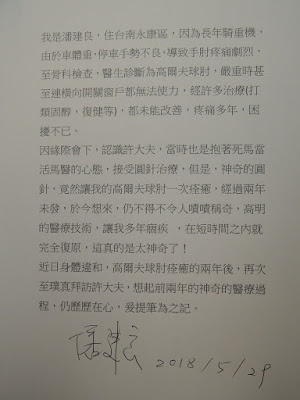 我是潘建良，住台南永康區，因為長年騎重機，
由於車體重，停車手勢不良，導致手肘疼痛劇烈，
至骨科檢查，醫生診斷為高爾夫球肘，嚴重時甚
至連橫向開關窗戶都無法使力，經許多治療(打
類固醇，復健等)，都未能改善，疼痛多年，困
擾不已。
因緣際會下，認識許大夫，當時也是抱著死馬當
活馬醫的心態，接受圓針治療，但是，神奇的圓
針，竟然讓我的高爾夫球肘一次痊癒，經過兩年
未發，於今想來，仍不得不令人嘖嘖稱奇，高明
的醫療技術，讓我多年痼疾 ，在短時間之內就
完全復原，這真的是太神奇了！
近日身體違和，高爾夫球肘痊癒的兩年後，再次
至璞真拜訪許大夫，想起前兩年的神奇的醫療過
程，仍歷歷在心，爰提筆為之記。
潘建良 2018/5/29